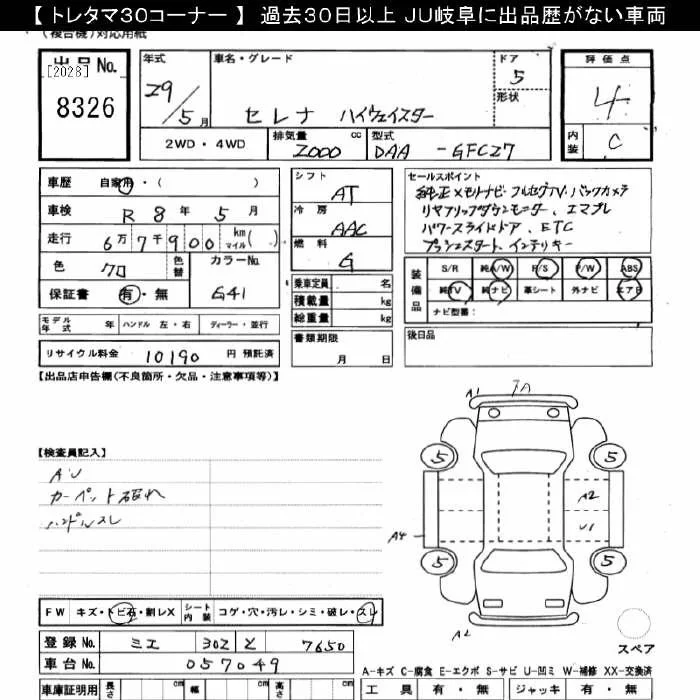 【トレタマ30コーナー】 過去30日以上 JU岐阜に出品歴がない車両
(複合機)対応用紙
出品No.
[2028]
8326
年式
29/5月
車名・グレード
セレナ ハイウェイスター
ドア
5
形状
評価点
4
内装
C
2WD・4WD
排気量
2000
cc
型式
DAA -GFC27
車歴 自家用・( )
車検 R 8年 5月
走行 6万7千900 km マイル( )
色 クロ
色替
カラーNo.
G41
保証書 有・無
シフト
AT
冷房
AAC
燃料
G
乗車定員 名
積載量 kg
総重量 kg
セールスポイント
純正メモリナビ・フルセグTV・バックカメラ
リヤフリップダウンモニター、エマブレ
パワースライドドア、ETC
プッシュスタート、インテリキー
装備品
S/R 純A/W P/S P/W ABS
純TV 純ナビ 革シート 外ナビ エアB
ナビ型番:
モデル年式 年 ハンドル 左・右 ディーラー・並行
書類期限
月 日
後日品
リサイクル料金 10190 円 預託済
【出品店申告欄(不良箇所・欠品・注意事項等)】
A1
5 5
A2
U1
A4
5 5
A2
【検査員記入】
AU
カーペット破れ
ハンドルスレ
FW キズ・トビ石・割レX シート内装 コゲ・穴・汚レ・シミ・破レ・スレ
登録No. ミエ 302 と 7650
車台No. 057049
スペア
A-キズ C-腐食 E-エクボ S-サビ U-凹ミ W-補修 XX-交換済
車庫証明用 長さ cm 幅 cm 高さ cm
工具 有・無 ジャッキ 有・無